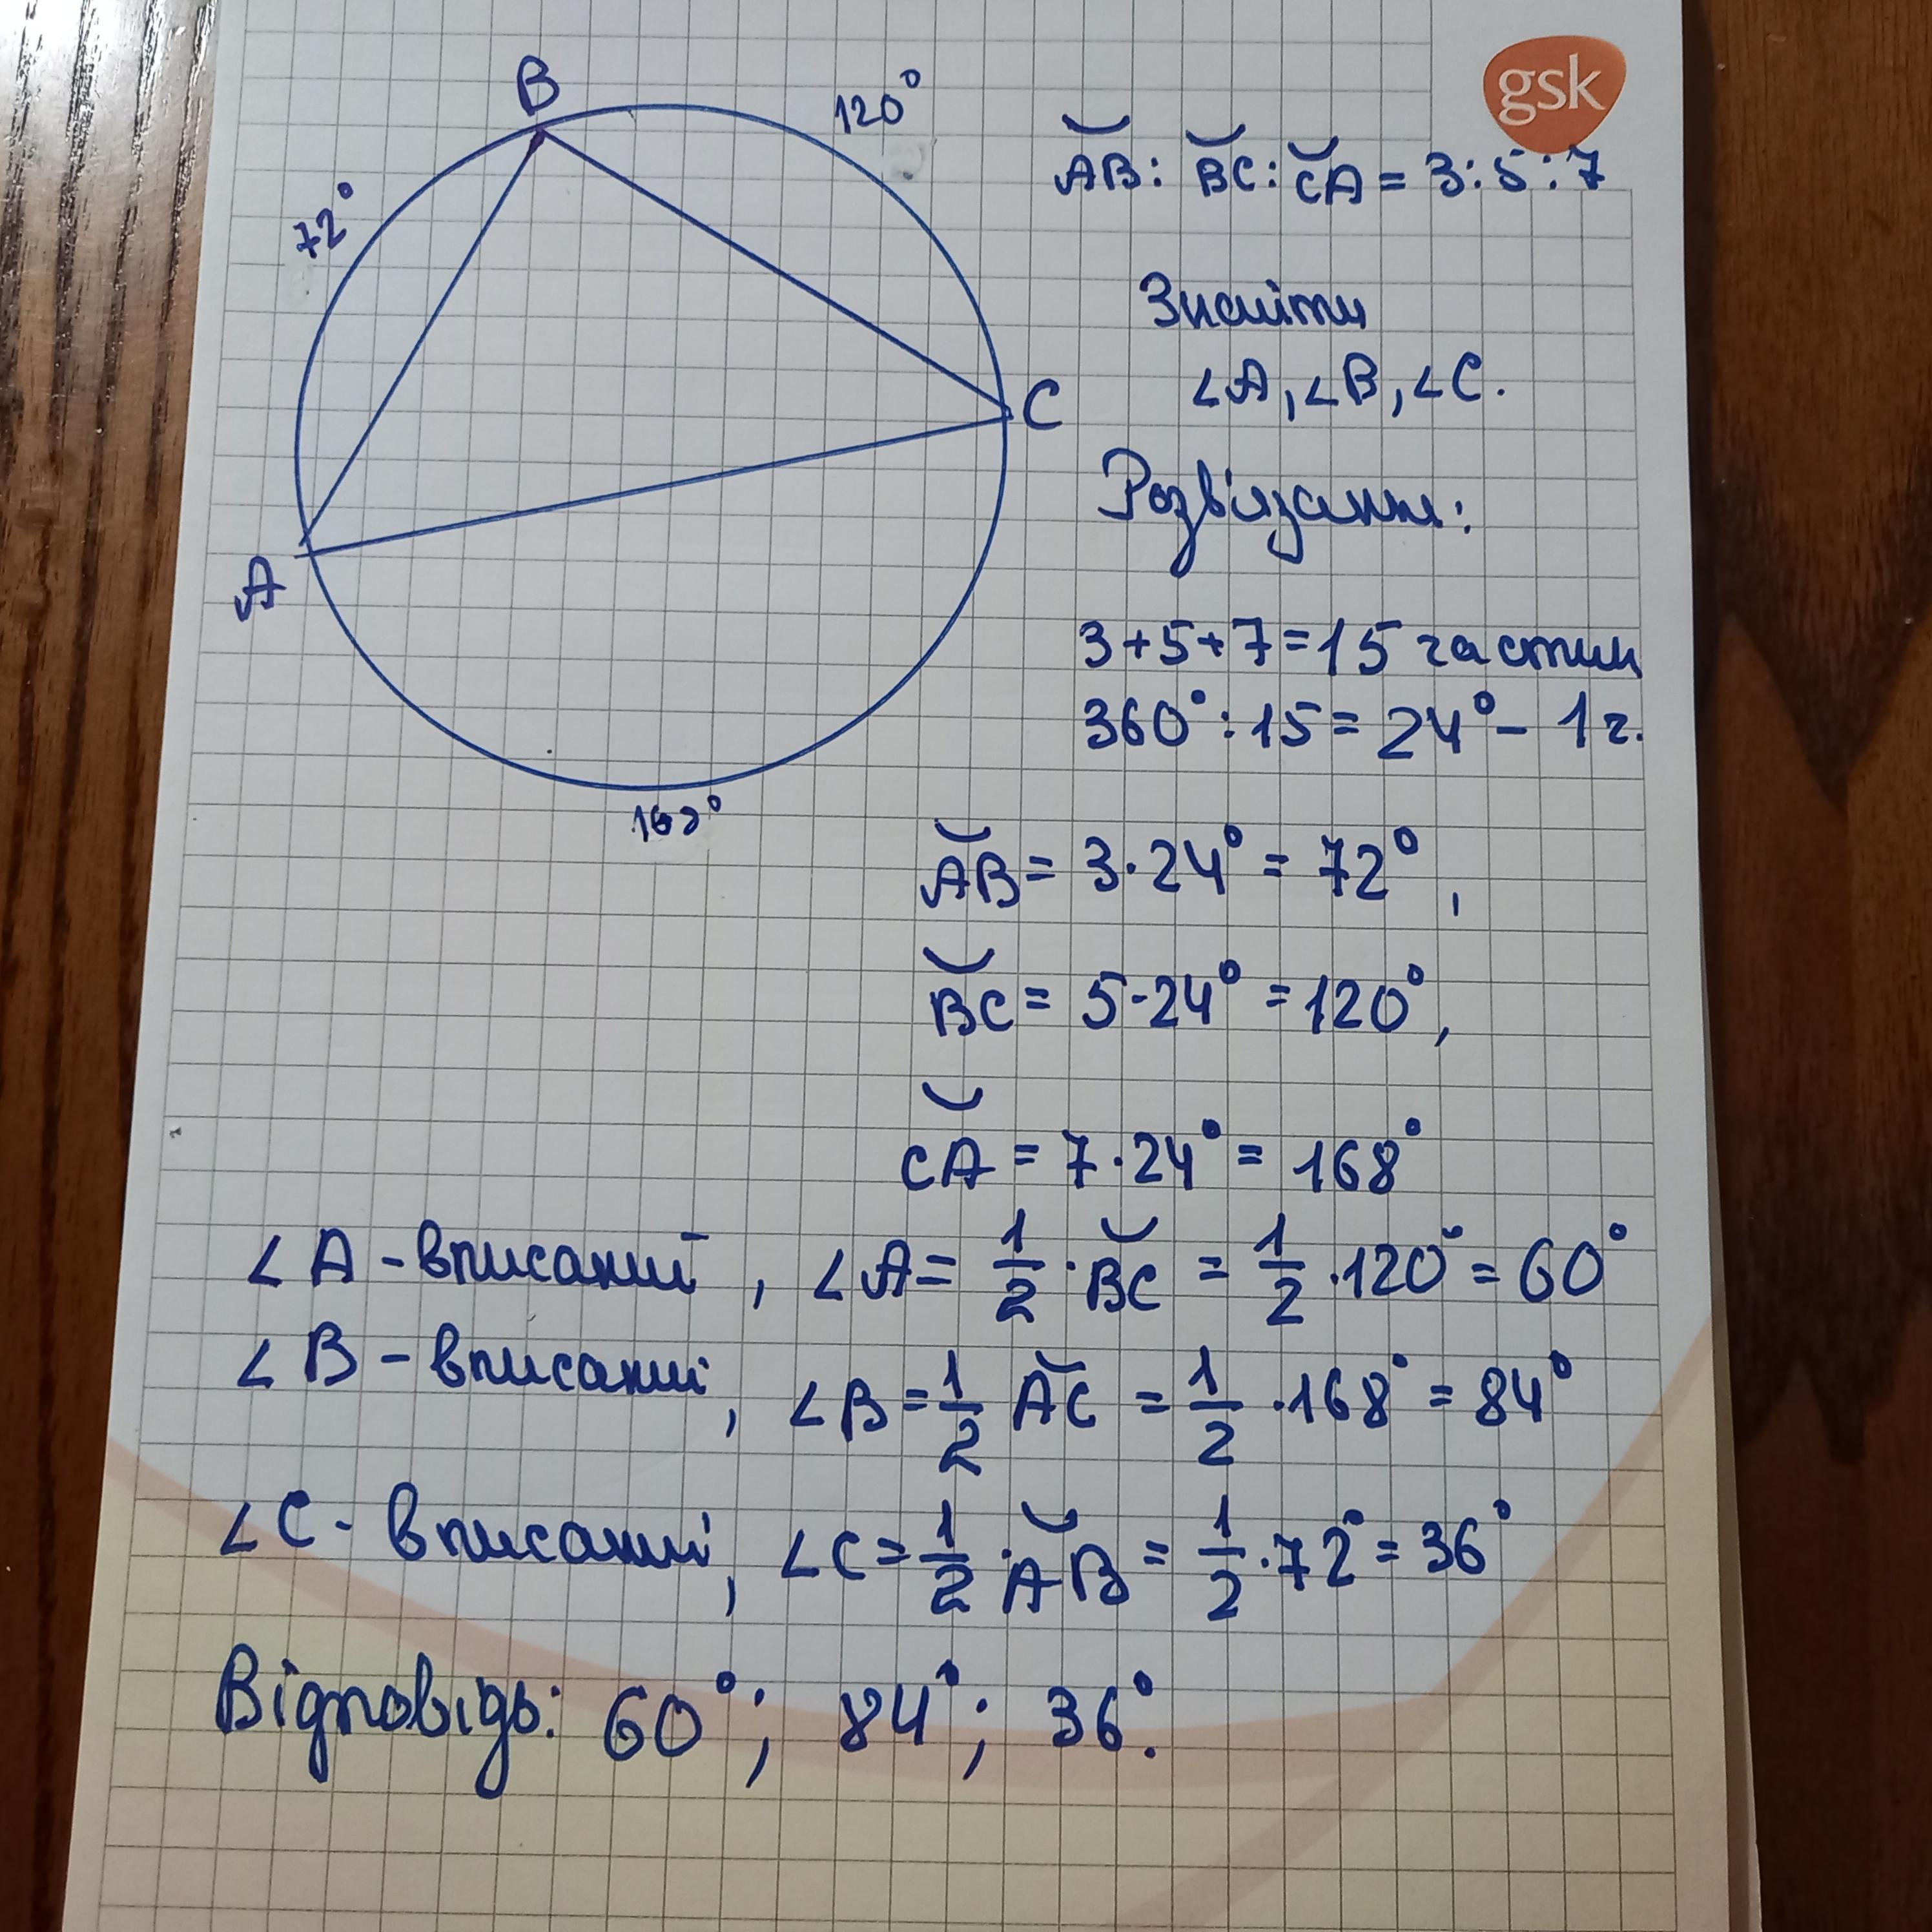 gsk
B
120°
72°
A
C
168°
A͝B : B͝C : C͝A = 3 : 5 : 7
Знайти
∠A, ∠B, ∠C.
Розв'язання:
3+5+7=15 частин
360° : 15 = 24° – 1 ч.
A͝B = 3·24° = 72°,
B͝C = 5·24° = 120°,
C͝A = 7·24° = 168°
∠A – вписаний, ∠A = 1/2 · B͝C = 1/2 · 120° = 60°
∠B – вписаний, ∠B = 1/2 A͝C = 1/2 · 168° = 84°
∠C - вписаний, ∠C = 1/2 · A͝B = 1/2 · 72° = 36°
Відповідь: 60°; 84°; 36°.